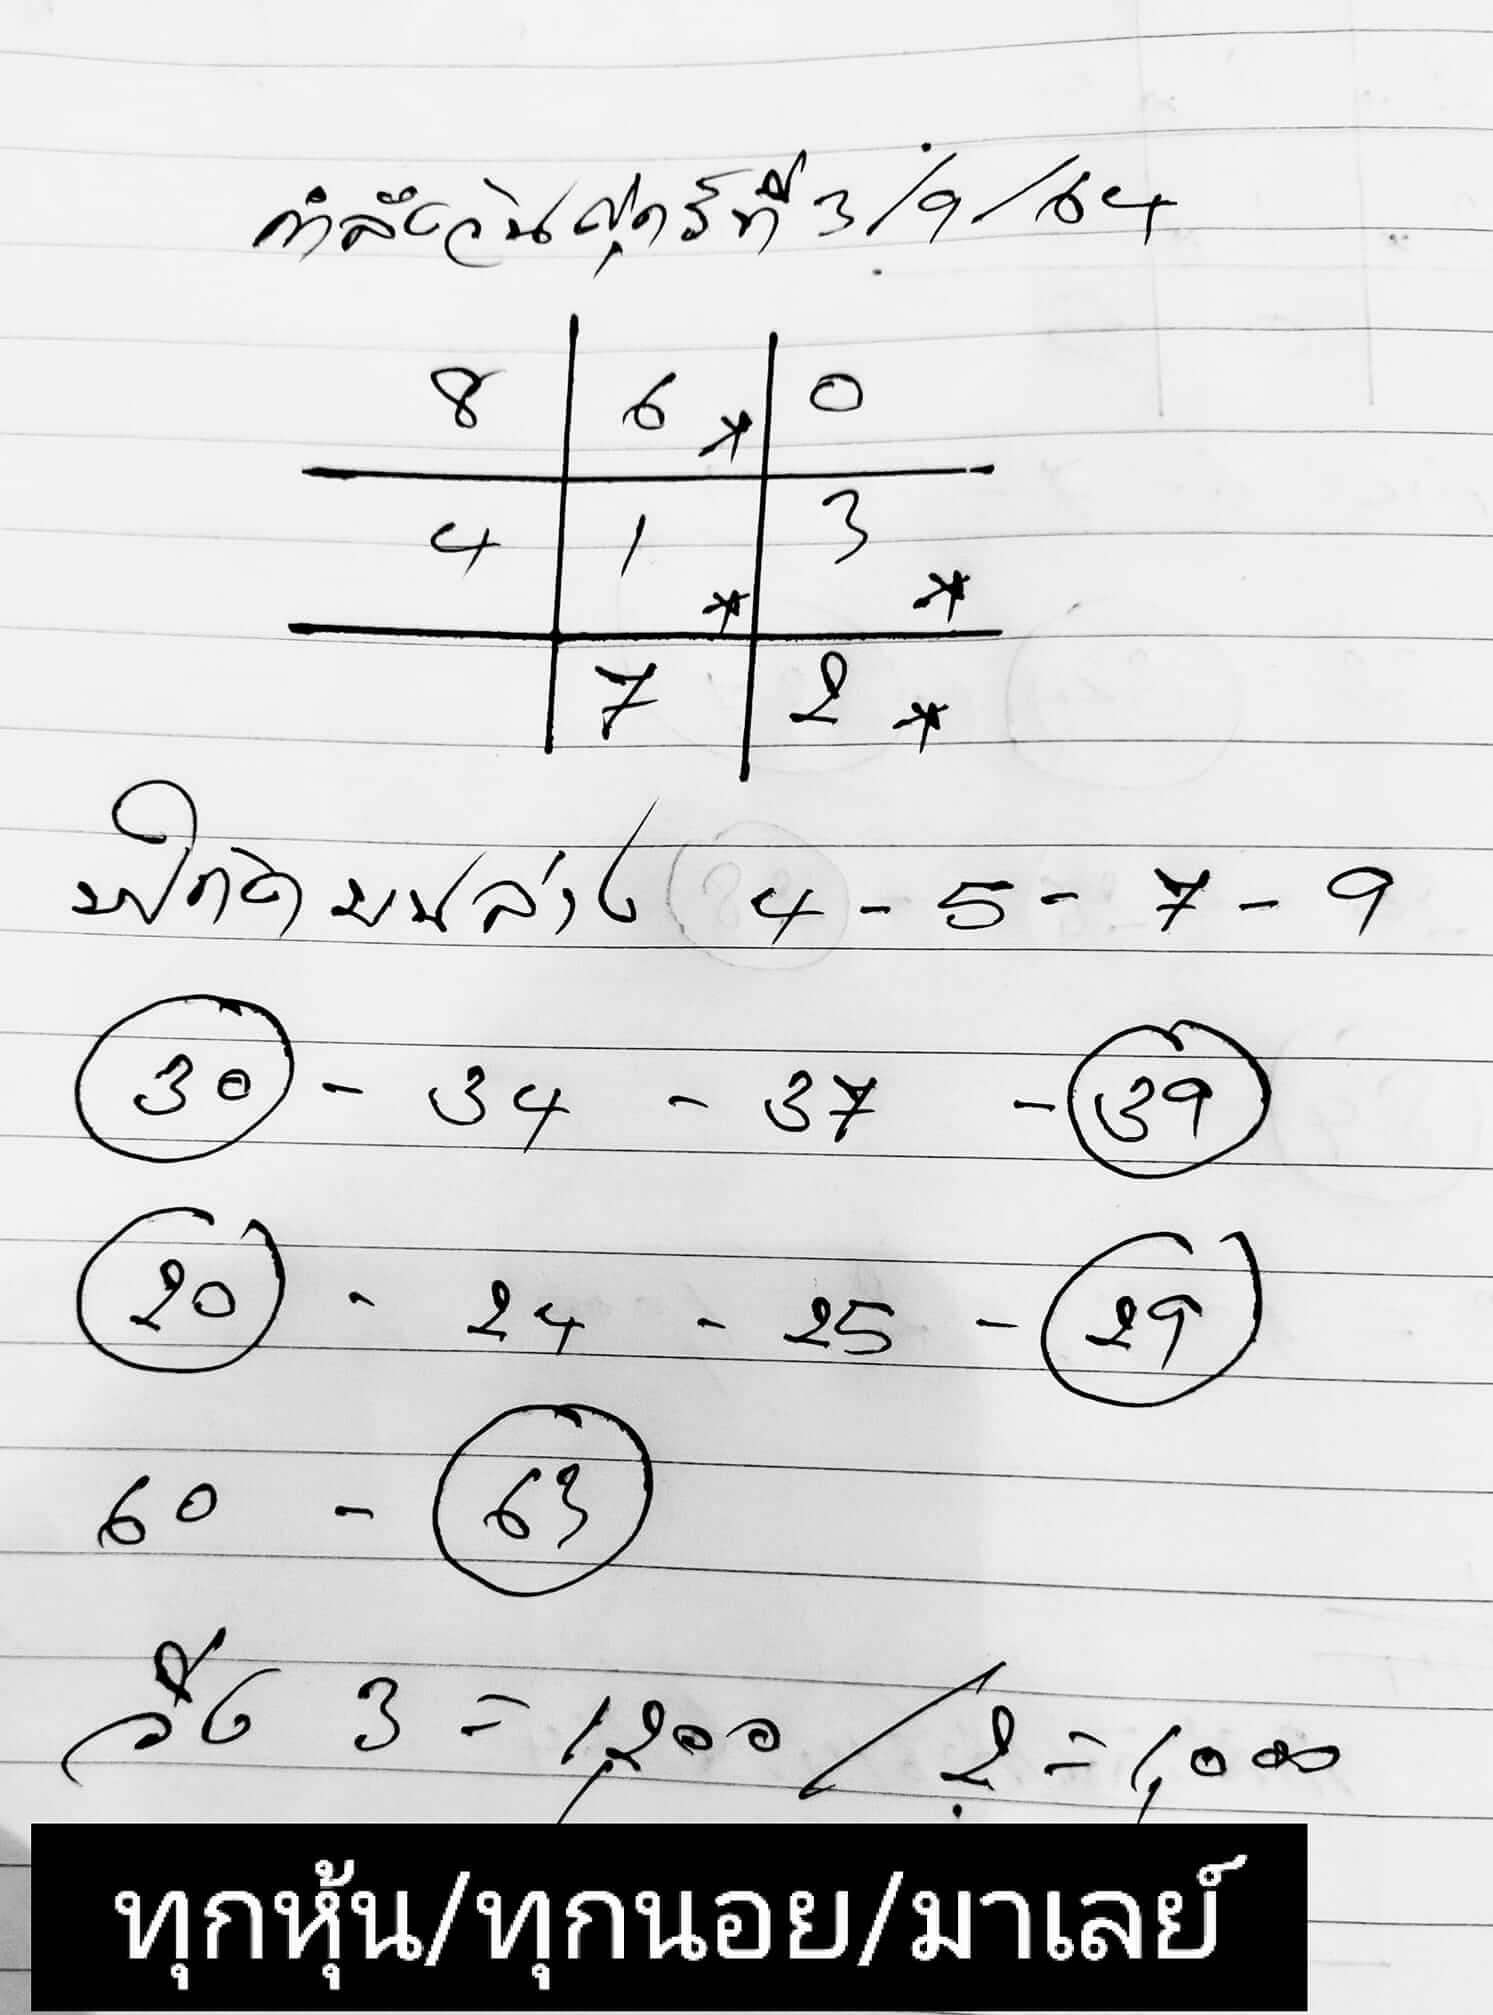 กำลังวันศุกร์ที่ 3/9/64
8 6 * 0
4 1 * 3 *
7 2 *
บนล่าง 4 - 5 - 7 - 9
30 - 34 - 37 - 39
20 - 24 - 25 - 29
60 - 63
วิ่ง 3 = 1,200 / 2 = 1,000
ทุกหุ้น/ทุกนอย/มาเลย์